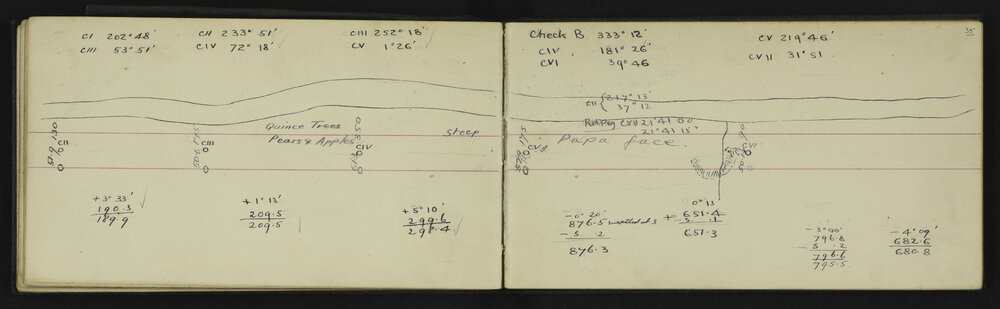 CI 202°48' CII 233° 51' CIII 252° 18'
CIII 53° 51' CIV 72° 18' CV 1° 26'
Quince Trees
Pears & Apples
steep
CII
CIII
CIV
+ 3° 33'
190.3
189.9
+ 1° 13'
209.5
209.5
+ 5° 10'
299.6
298.4
35
Check B 333° 12' CV 219° 46'
CIV 181° 26' CVII 31° 51
CVI 39° 46
CII 217° 13'
37° 12
CVII 21°41 00
21°41 15"
Papa face.
0° 11'
+ 651.4
651.3
- 0° 20'
876.5
- 5 .2
876.3
- 3° 00'
796.8
5 .2
796.6
795.5
- 4° 09'
682.6
680.8